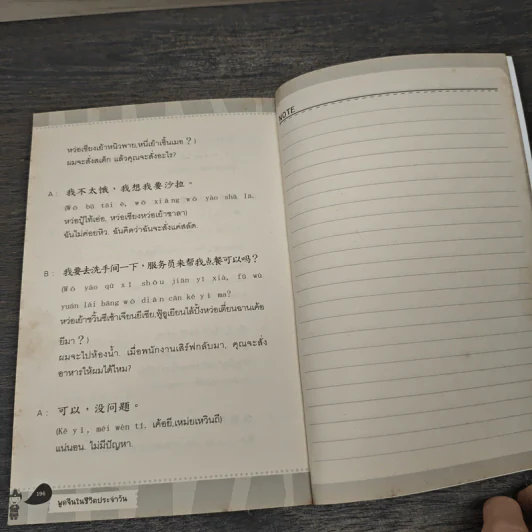 หว่อเซียงเย้าหนิวพาย,หนี่เย้าเชิ้นเมอ ? )
ผมจะสั่งสเต็ก แล้วคุณจะสั่งอะไร?
A : 我不太饿，我想我要沙拉。
(Wǒ bú tài è, wǒ xiǎng wǒ yào shā lā,
หว่อปู๋ไท้เอ้อ, หว่อเซียงหว่อเย้าซาลา)
ฉันไม่ค่อยหิว ฉันคิดว่าฉันจะสั่งแค่สลัด
B : 我要去洗手间一下，服务员来帮我点餐可以吗？
(Wǒ yào qù xǐ shǒu jiān yí xià, fú wù
yuán lái bāng wǒ diǎn cān kě yǐ ma?
หว่อเย้าชวี้นซีเซ้าเจียนยี้เซี่ย,ฟู้อูเยียนไล้ปั้งหว่อเตี่ยนฉานเค้อ
ยีมา ? )
ผมจะไปห้องน้ำ เมื่อพนักงานเสิร์ฟกลับมา, คุณจะสั่ง
อาหารให้ผมได้ไหม?
A : 可以，没问题。
(Kě yǐ, méi wèn tí, เค้อยี,เหม่ยเหวินถี)
แน่นอน ไม่มีปัญหา
196 พูดจีนในชีวิตประจำวัน
NOTE